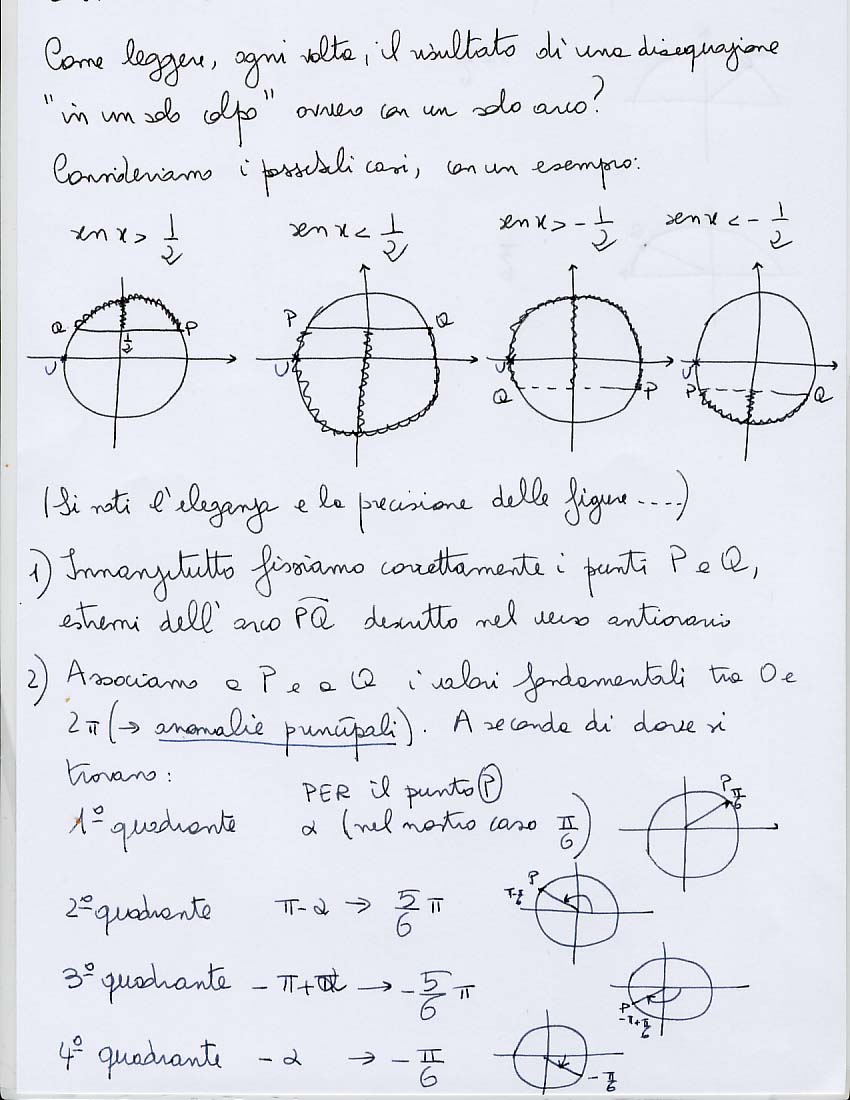 Come leggere, ogni volta, il risultato di una disequazione
"in un solo colpo" ovvero con un solo arco?
Consideriamo i possibili casi, con un esempio:
sen x > 1/2 sen x < 1/2 sen x > - 1/2 sen x < - 1/2
Q P 1/2 U
P Q U
U Q P
U P Q
(Si noti l'eleganza e la precisione delle figure ....)
1) Innanzitutto fissiamo correttamente i punti P e Q,
estremi dell'arco PQ descritto nel verso antiorario
2) Associamo a P e a Q i valori fondamentali tra 0 e
2π (→ anomalie principali). A seconda di dove si
trovano: PER il punto P
1º quadrante α (nel nostro caso π/6) P π/6
2º quadrante π-α → 5/6 π P π-π/6
3º quadrante -π+α → -5/6 π P -π+π/6
4º quadrante -α → -π/6 -π/6